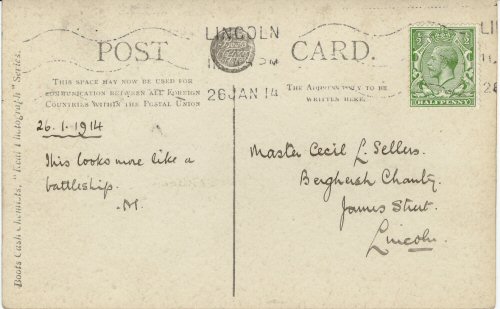 LINCOLN
26 JAN 14
POST CARD.
THIS SPACE MAY NOW BE USED FOR
COMMUNICATION BETWEEN ALL FOREIGN
COUNTRIES WITHIN THE POSTAL UNION
THE ADDRESS ONLY TO BE
WRITTEN HERE.
HALFPENNY
26.1.1914
This looks more like a
battleship.
.M.
Master Cecil L Sellers.
Berghersh Chantry.
James Street.
Lincoln.
Boots Cash Chemists, "Real Photograph" Series.